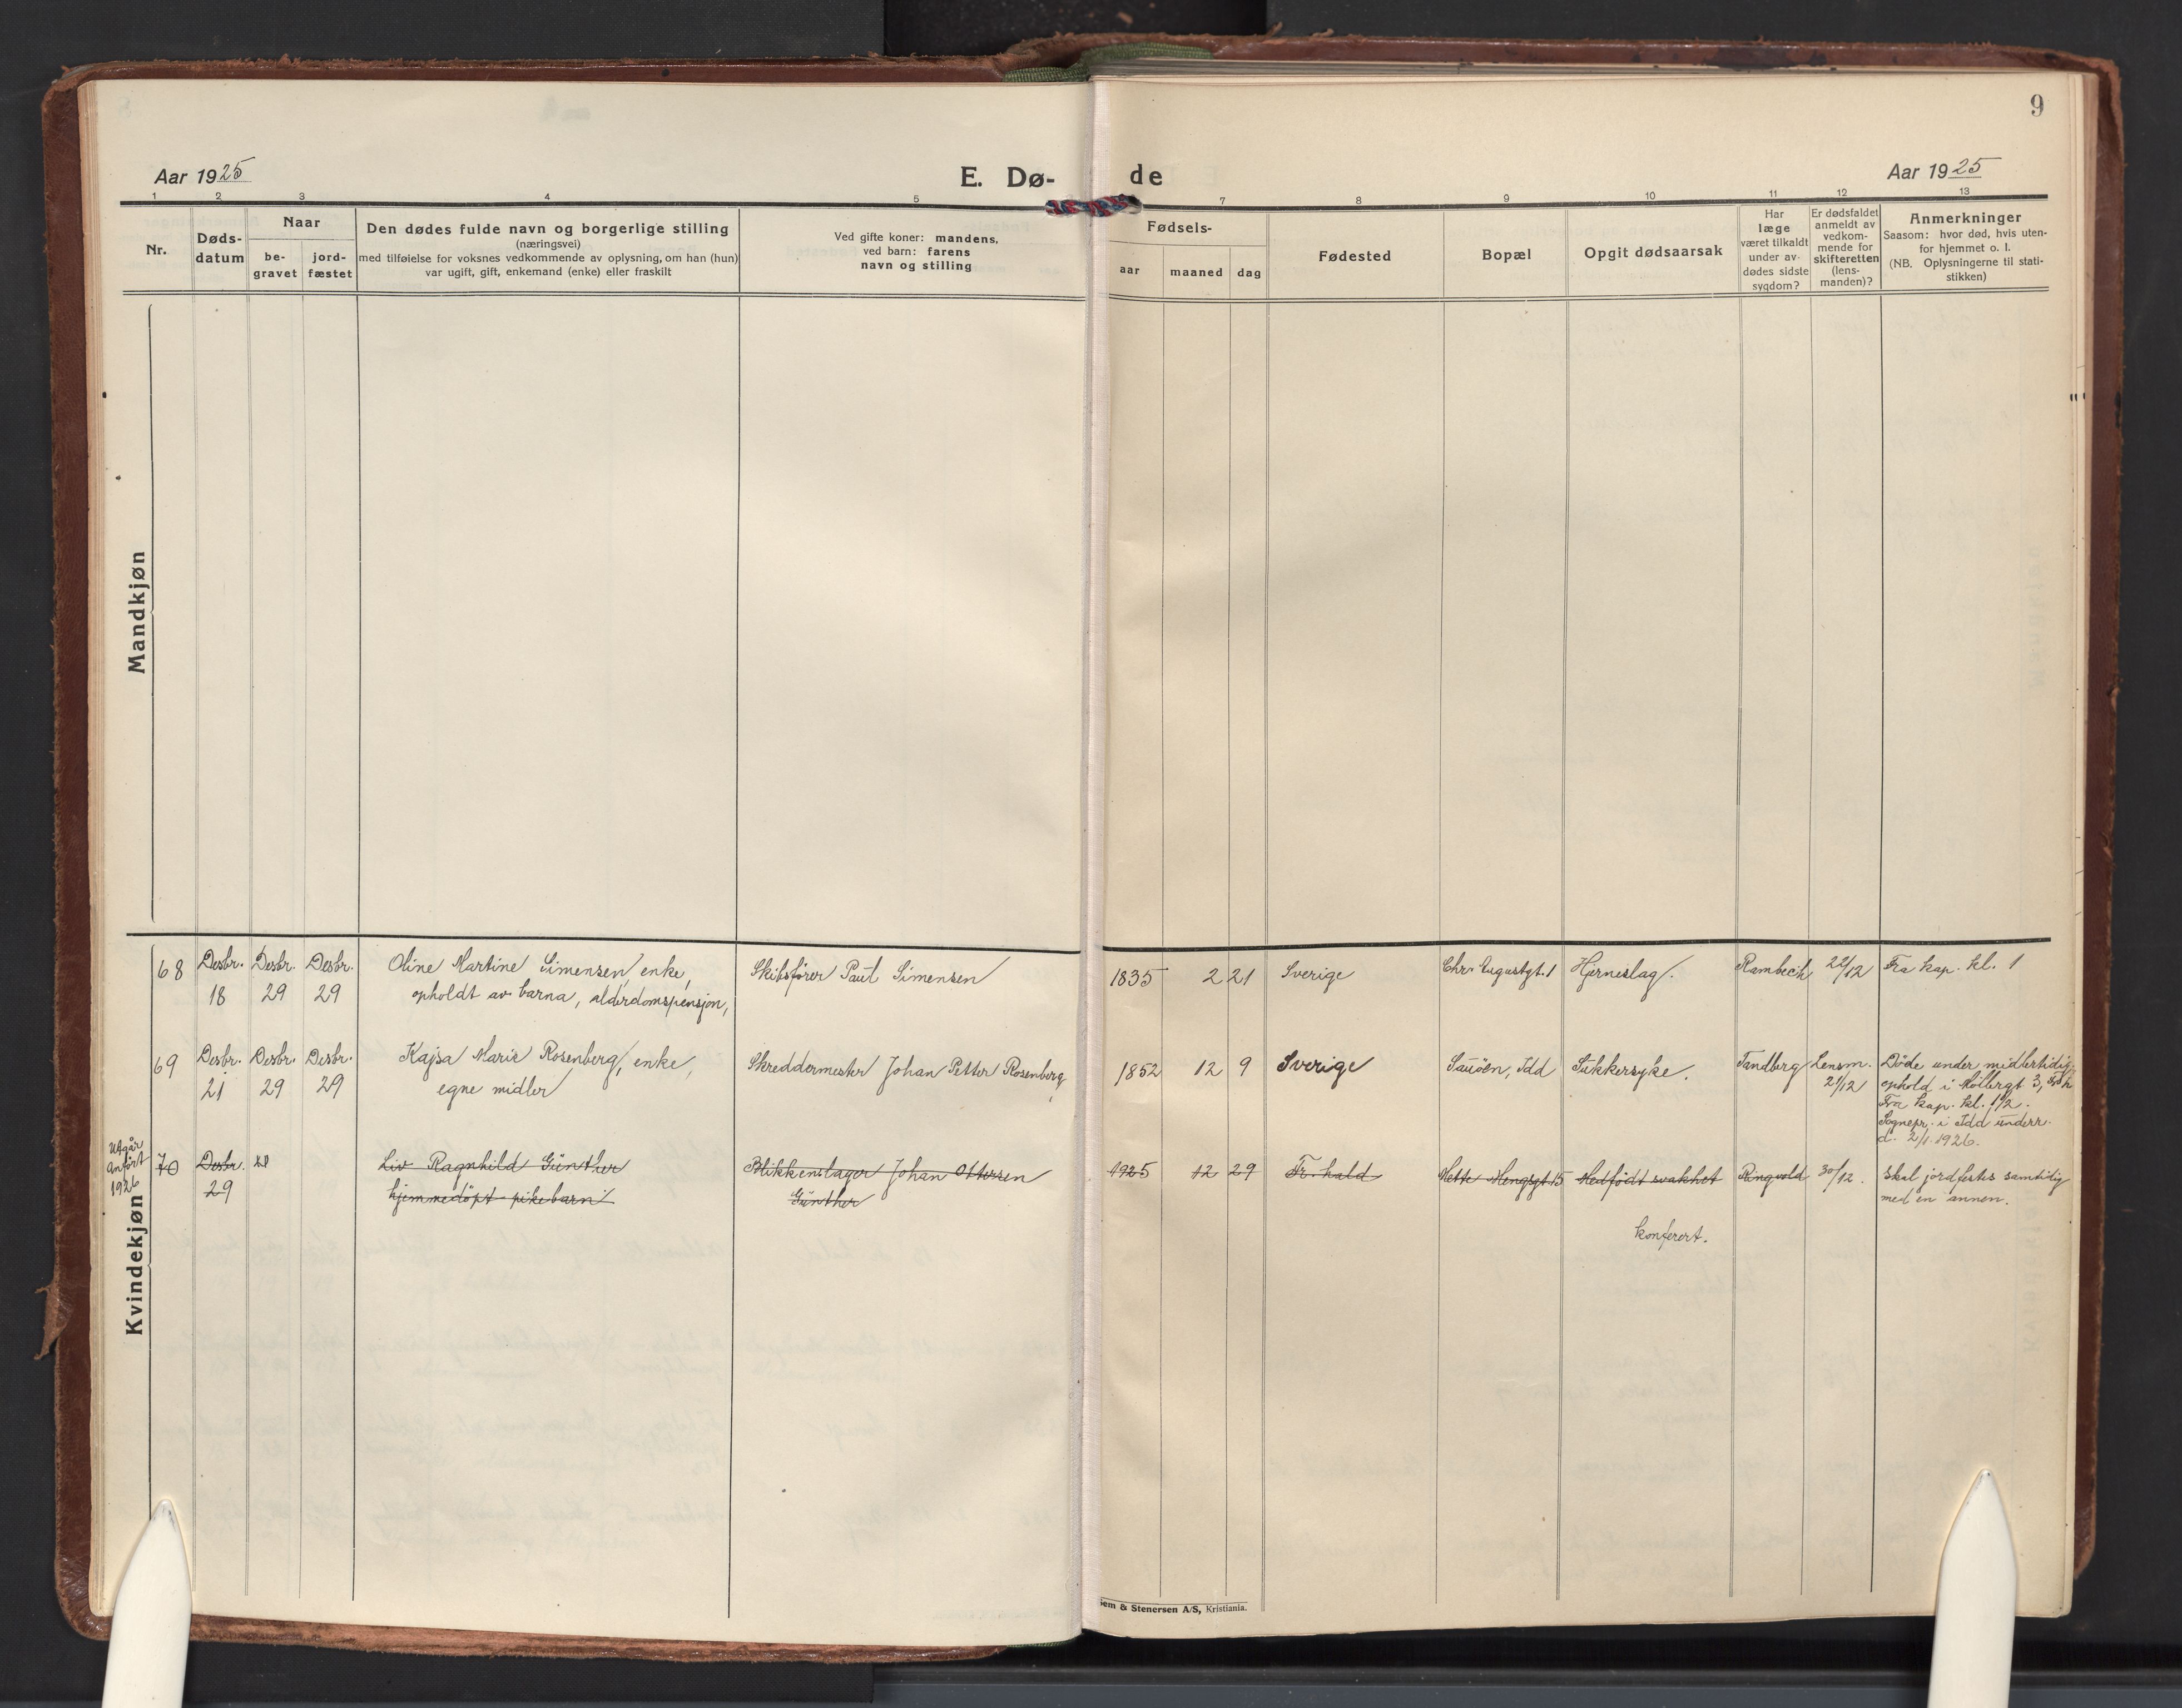 9
Aar 1925
E. Dø-
de
Aar 1925
1 2 3 4 5 7 8 9 10 11 12 13
Nr.
Døds-
datum
Naar
be-
gravet
jord-
fæstet
Den dødes fulde navn og borgerlige stilling
(næringsvei)
med tilføielse for voksnes vedkommende av oplysning, om han (hun)
var ugift, gift, enkemand (enke) eller fraskilt
Ved gifte koner: mandens,
ved barn: farens
navn og stilling
Fødsels-
aar
maaned
dag
Fødested
Bopæl
Opgit dødsaarsak
Har
læge
været tilkaldt
under av-
dødes sidste
sygdom?
Er dødsfaldet
anmeldt av
vedkom-
mende for
skifteretten
(lens-
manden)?
Anmerkninger
Saasom: hvor død, hvis uten-
for hjemmet o. l.
(NB. Oplysningerne til stati-
stikken)
Mandkjøn
Kvindekjøn
68
Desbr.
18
Desbr.
29
Desbr.
29
Oline Martine Simensen, enke,
opholdt av barna, alderdomspensjon,
Skibsfører Paul Simensen
1835 2 21 Sverige
Chr. Augustgt. 1
Hjerneslag.
Rambech
22/12
Fra kap. kl. 1
69
Desbr.
21
Desbr.
29
Desbr.
29
Kajsa Marie Rosenberg, enke,
egne midler
Skreddermester Johan Petter Rosenberg
1852 12 9 Sverige
Sauöen, Idd
Sukkersyke.
Tandberg
Lensm.
21/12
Döde under midlertidig
ophold i Mölbergt 3, Frh
Fra kap. kl. 1 1/2.
Sognepr. i Idd underr.
d. 2/1 1926.
Utgår
anført
1926
70
Desbr.
29
Liv Ragnhild Günther
hjemmedöpt pikebarn
Blikkenslager Johan Ottersen
Günther
1925 12 29 Fr.hald
Mette Mengsgt. 15
Medfödt svakhet
Ringvold
30/12.
Skal jordfestes samtidig
med en annen.
konferert.
Sem & Stenersen A/S, Kristiania.